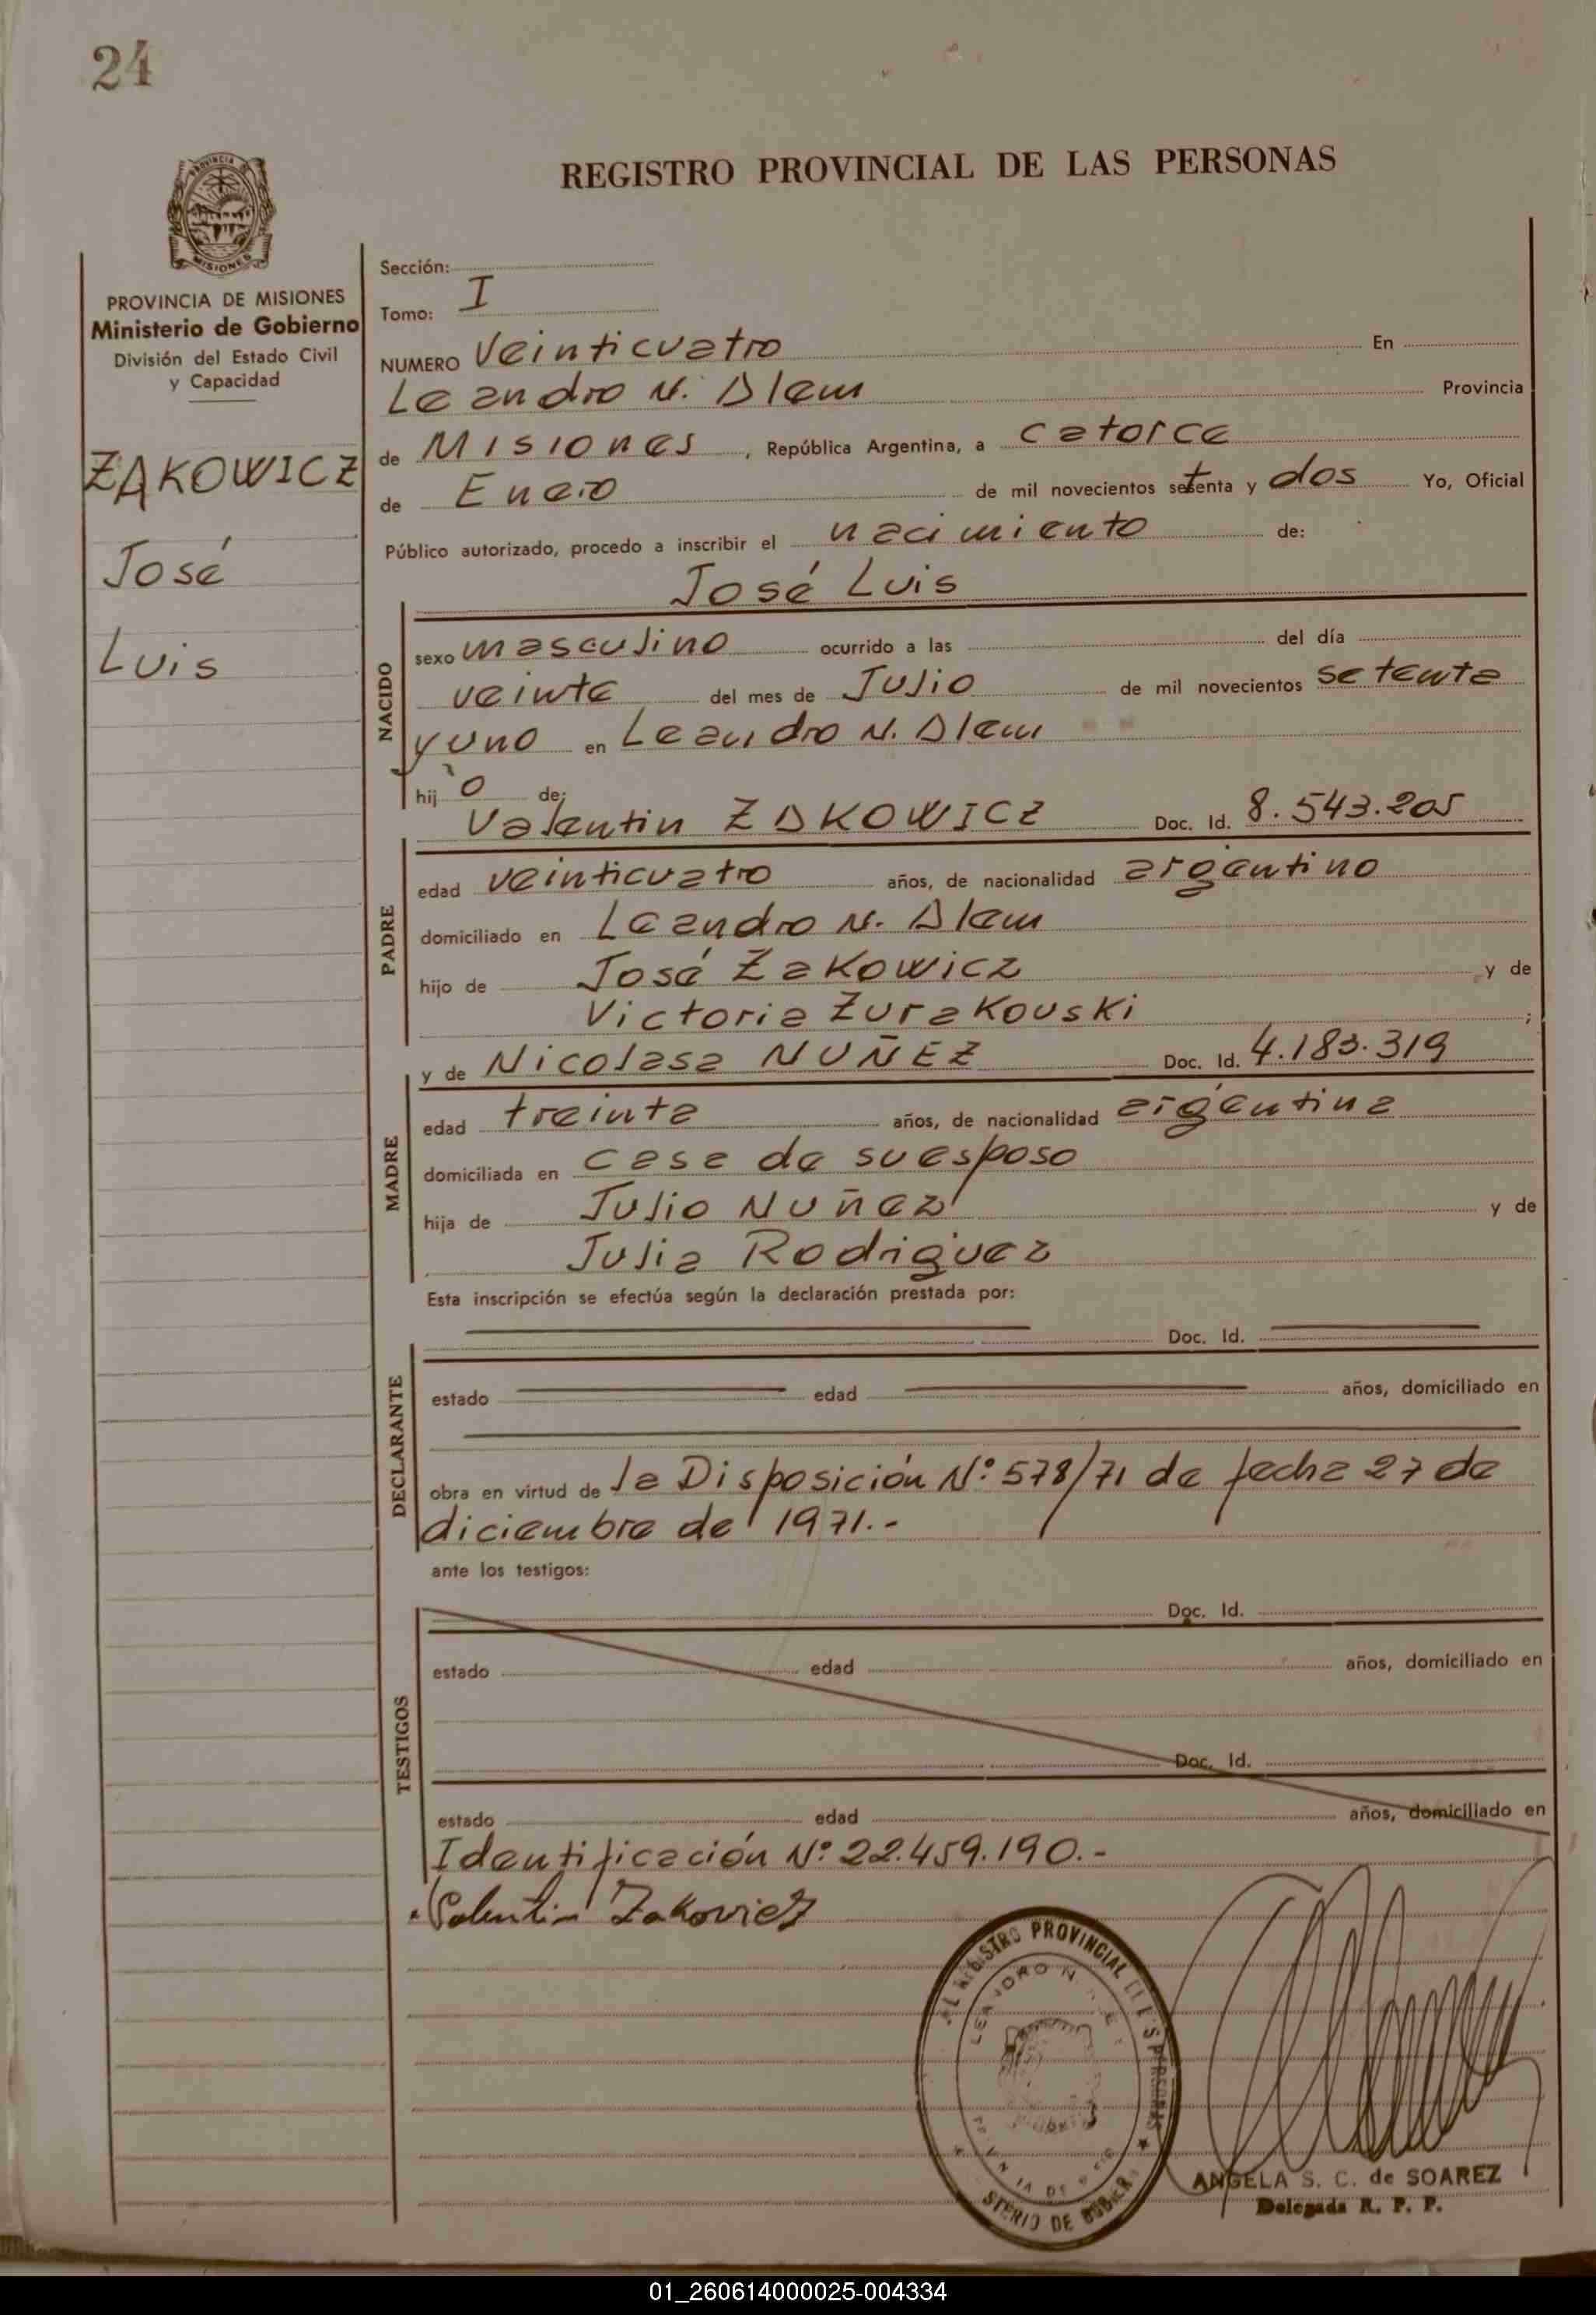 24
REGISTRO PROVINCIAL DE LAS PERSONAS
PROVINCIA
MISIONES
PROVINCIA DE MISIONES
Ministerio de Gobierno
División del Estado Civil
y Capacidad
ZAKOWICZ
José
Luis
Sección:
Tomo: I
NUMERO Veinticuatro En
Leandro N. Alem Provincia
de Misiones, República Argentina, a catorce
de Enero de mil novecientos setenta y dos Yo, Oficial
Público autorizado, procedo a inscribir el nacimiento de:
José Luis
NACIDO
sexo masculino ocurrido a las del día
veinte del mes de Julio de mil novecientos setenta
y uno en Leandro N. Alem
hijo de:
Valentin ZAKOWICZ Doc. Id. 8.543.205
PADRE
edad veinticuatro años, de nacionalidad argentino
domiciliado en Leandro N. Alem
hijo de José Zakowicz y de
Victoria Zurakouski ;
y de Nicolasa NUÑEZ Doc. Id. 4.183.319
MADRE
edad treinta años, de nacionalidad argentina
domiciliada en casa de su esposo
hija de Julio Nuñez y de
Julia Rodriguez
Esta inscripción se efectúa según la declaración prestada por:
Doc. Id.
DECLARANTE
estado edad años, domiciliado en
obra en virtud de la Disposición Nº 578/71 de fecha 27 de
diciembre de 1971.-
ante los testigos:
Doc. Id.
TESTIGOS
estado edad años, domiciliado en
Doc. Id.
estado edad años, domiciliado en
Identificación Nº 22.459.190.-
Valentin Zakoviez
REGISTRO PROVINCIAL DE LAS PERSONAS
LEANDRO N.
DE GOBIER
ANGELA S. C. de SOAREZ
Delegada R. P. P.
01_260614000025-004334